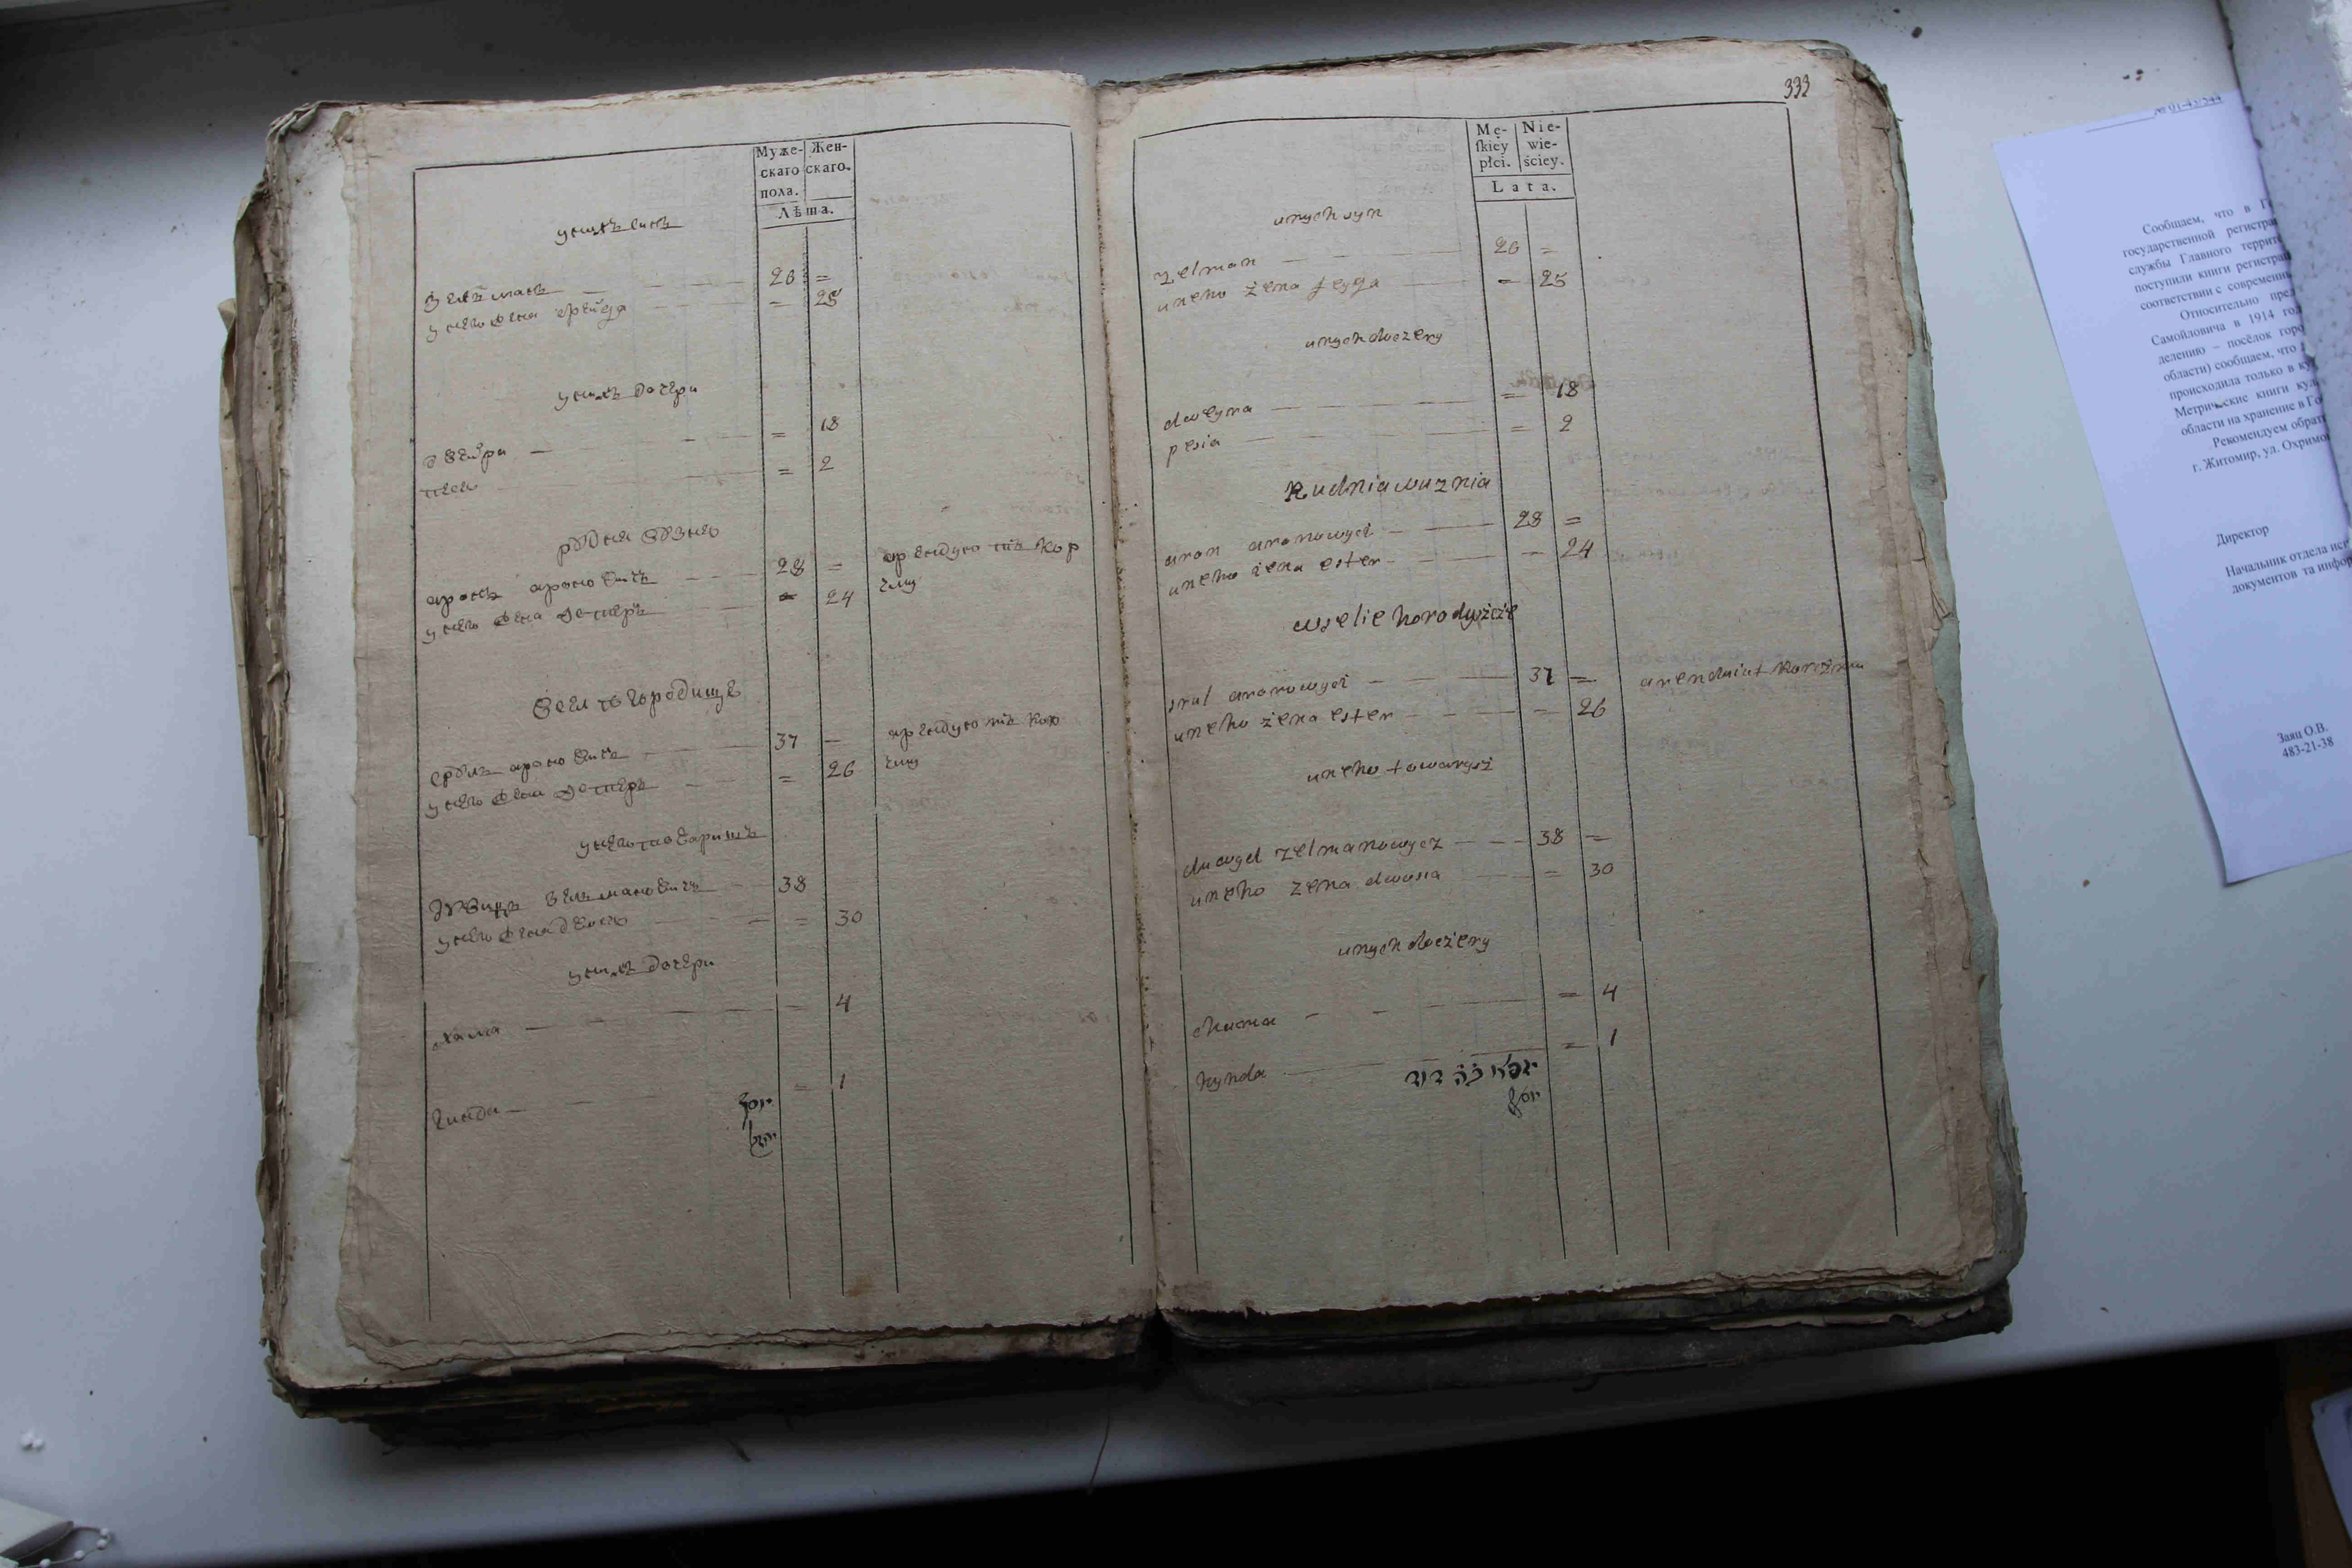 Муже-
скаго
пола.
Жен-
скаго.
Лѣта.
унихъ синъ
Зелъманъ 26 =
унего жена фейга = 25
унихъ дочери
двейра = 18
песя = 2
рудня вузня
аронъ ароновичъ 28 = арендуютъ кор
унего жена эстеръ = 24 чму
Вселѣ городище
сруль ароновичъ 37 — арендуютъ кор
унего жена эстеръ = 26 чму
унего товаришъ
дувидъ зелмановичъ 38
унего жена двося = 30
унихъ дочери
хама = 4
гинда = 1
יוסף
333
Mę-
ſkiey
płci.
Nie-
wie-
ściey.
Lata.
unych syn
zelman 26 =
uneho żena fejga = 25
unych doczery
dweyra = 18
pesia = 2
Rudnia wuznia
aron aronowycz 28 =
uneho żena ester = 24
wselie horodyszcze
srul aronowycz 37 = arendniut korczmu
uneho żena ester = 26
uneho towarysz
duwyd zelmanowycz 38 =
uneho żena dwosia = 30
unych doczery
chama = 4
hynda = 1
דוד
יוסף
№ 01-43/544
Сообщаем, что в Г
государственной регистра
службы Главного террит
поступили книги регистра
соответствии с современн
Относительно пред
Самойловича в 1914 год
делению – посёлок горо
области) сообщаем, что
происходила только в ку
Метрические книги кул
области на хранение в Го
Рекомендуем обрат
г. Житомир, ул. Охримо
Директор
Начальник отдела исп
документов та инфор
Заяц О.В.
483-21-38